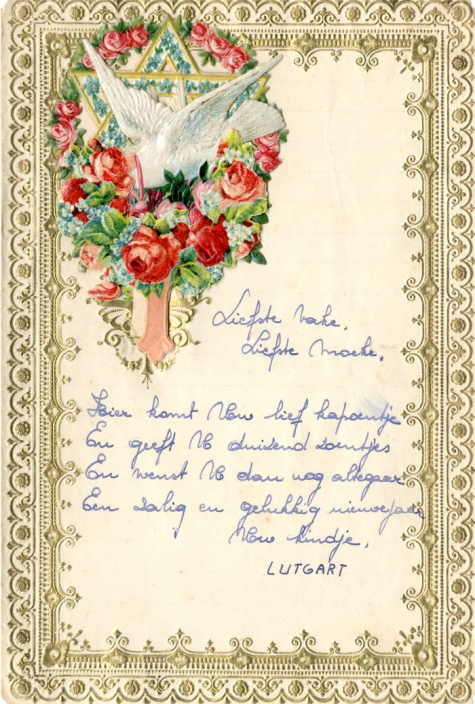 Liefste vake,
Liefste moeke,
Hier komt Uw lief kapoentje
En geeft U duizend zoentjes
En wenst U dan nog altegaar
Een zalig en gelukkig nieuwejaar
Uw kindje,
LUTGART